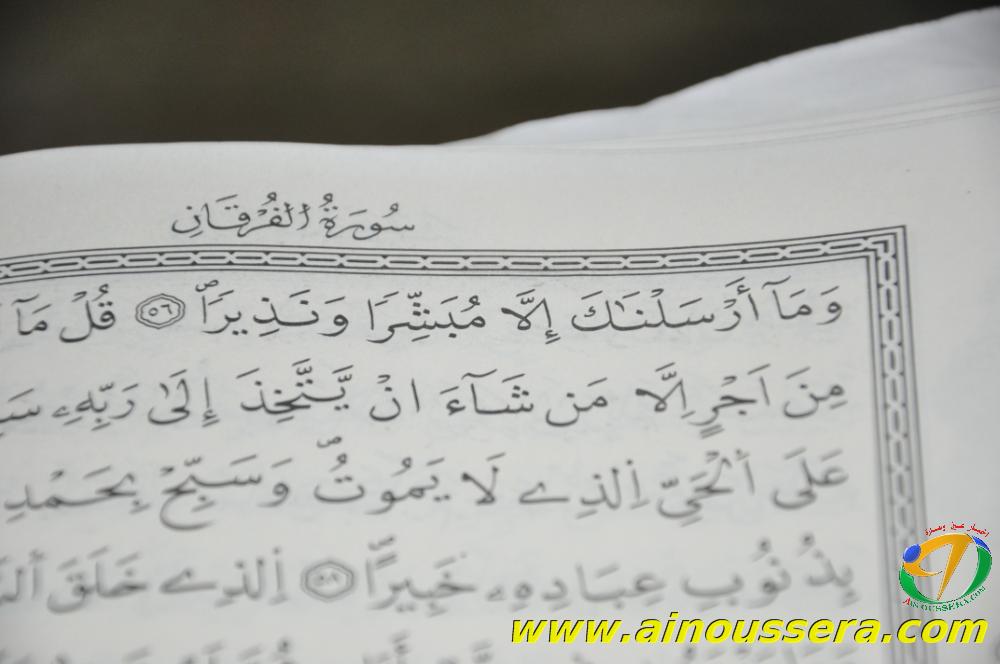 سُورَةُ الْفُرْقَانِ
وَمَآ أَرْسَلْنَٰكَ إِلَّا مُبَشِّرًا وَنَذِيرًا ۝٥٦ قُلْ مَآ
مِنَ اَجْرٍ اِلَّا مَن شَآءَ انْ يَّتَّخِذَ إِلَىٰ رَبِّهِۦ
عَلَى اَ۬لْحَيِّ اِ۬لذِے لَا يَمُوتُ وَسَبِّحْ بِحَمْدِ
بِذُنُوبِ عِبَادِهِۦ خَبِيرًا ۝٥٨ اَ۬لذِے خَلَقَ
أخبار عين وسارة
AINOUSSERA.COM
www.ainoussera.com